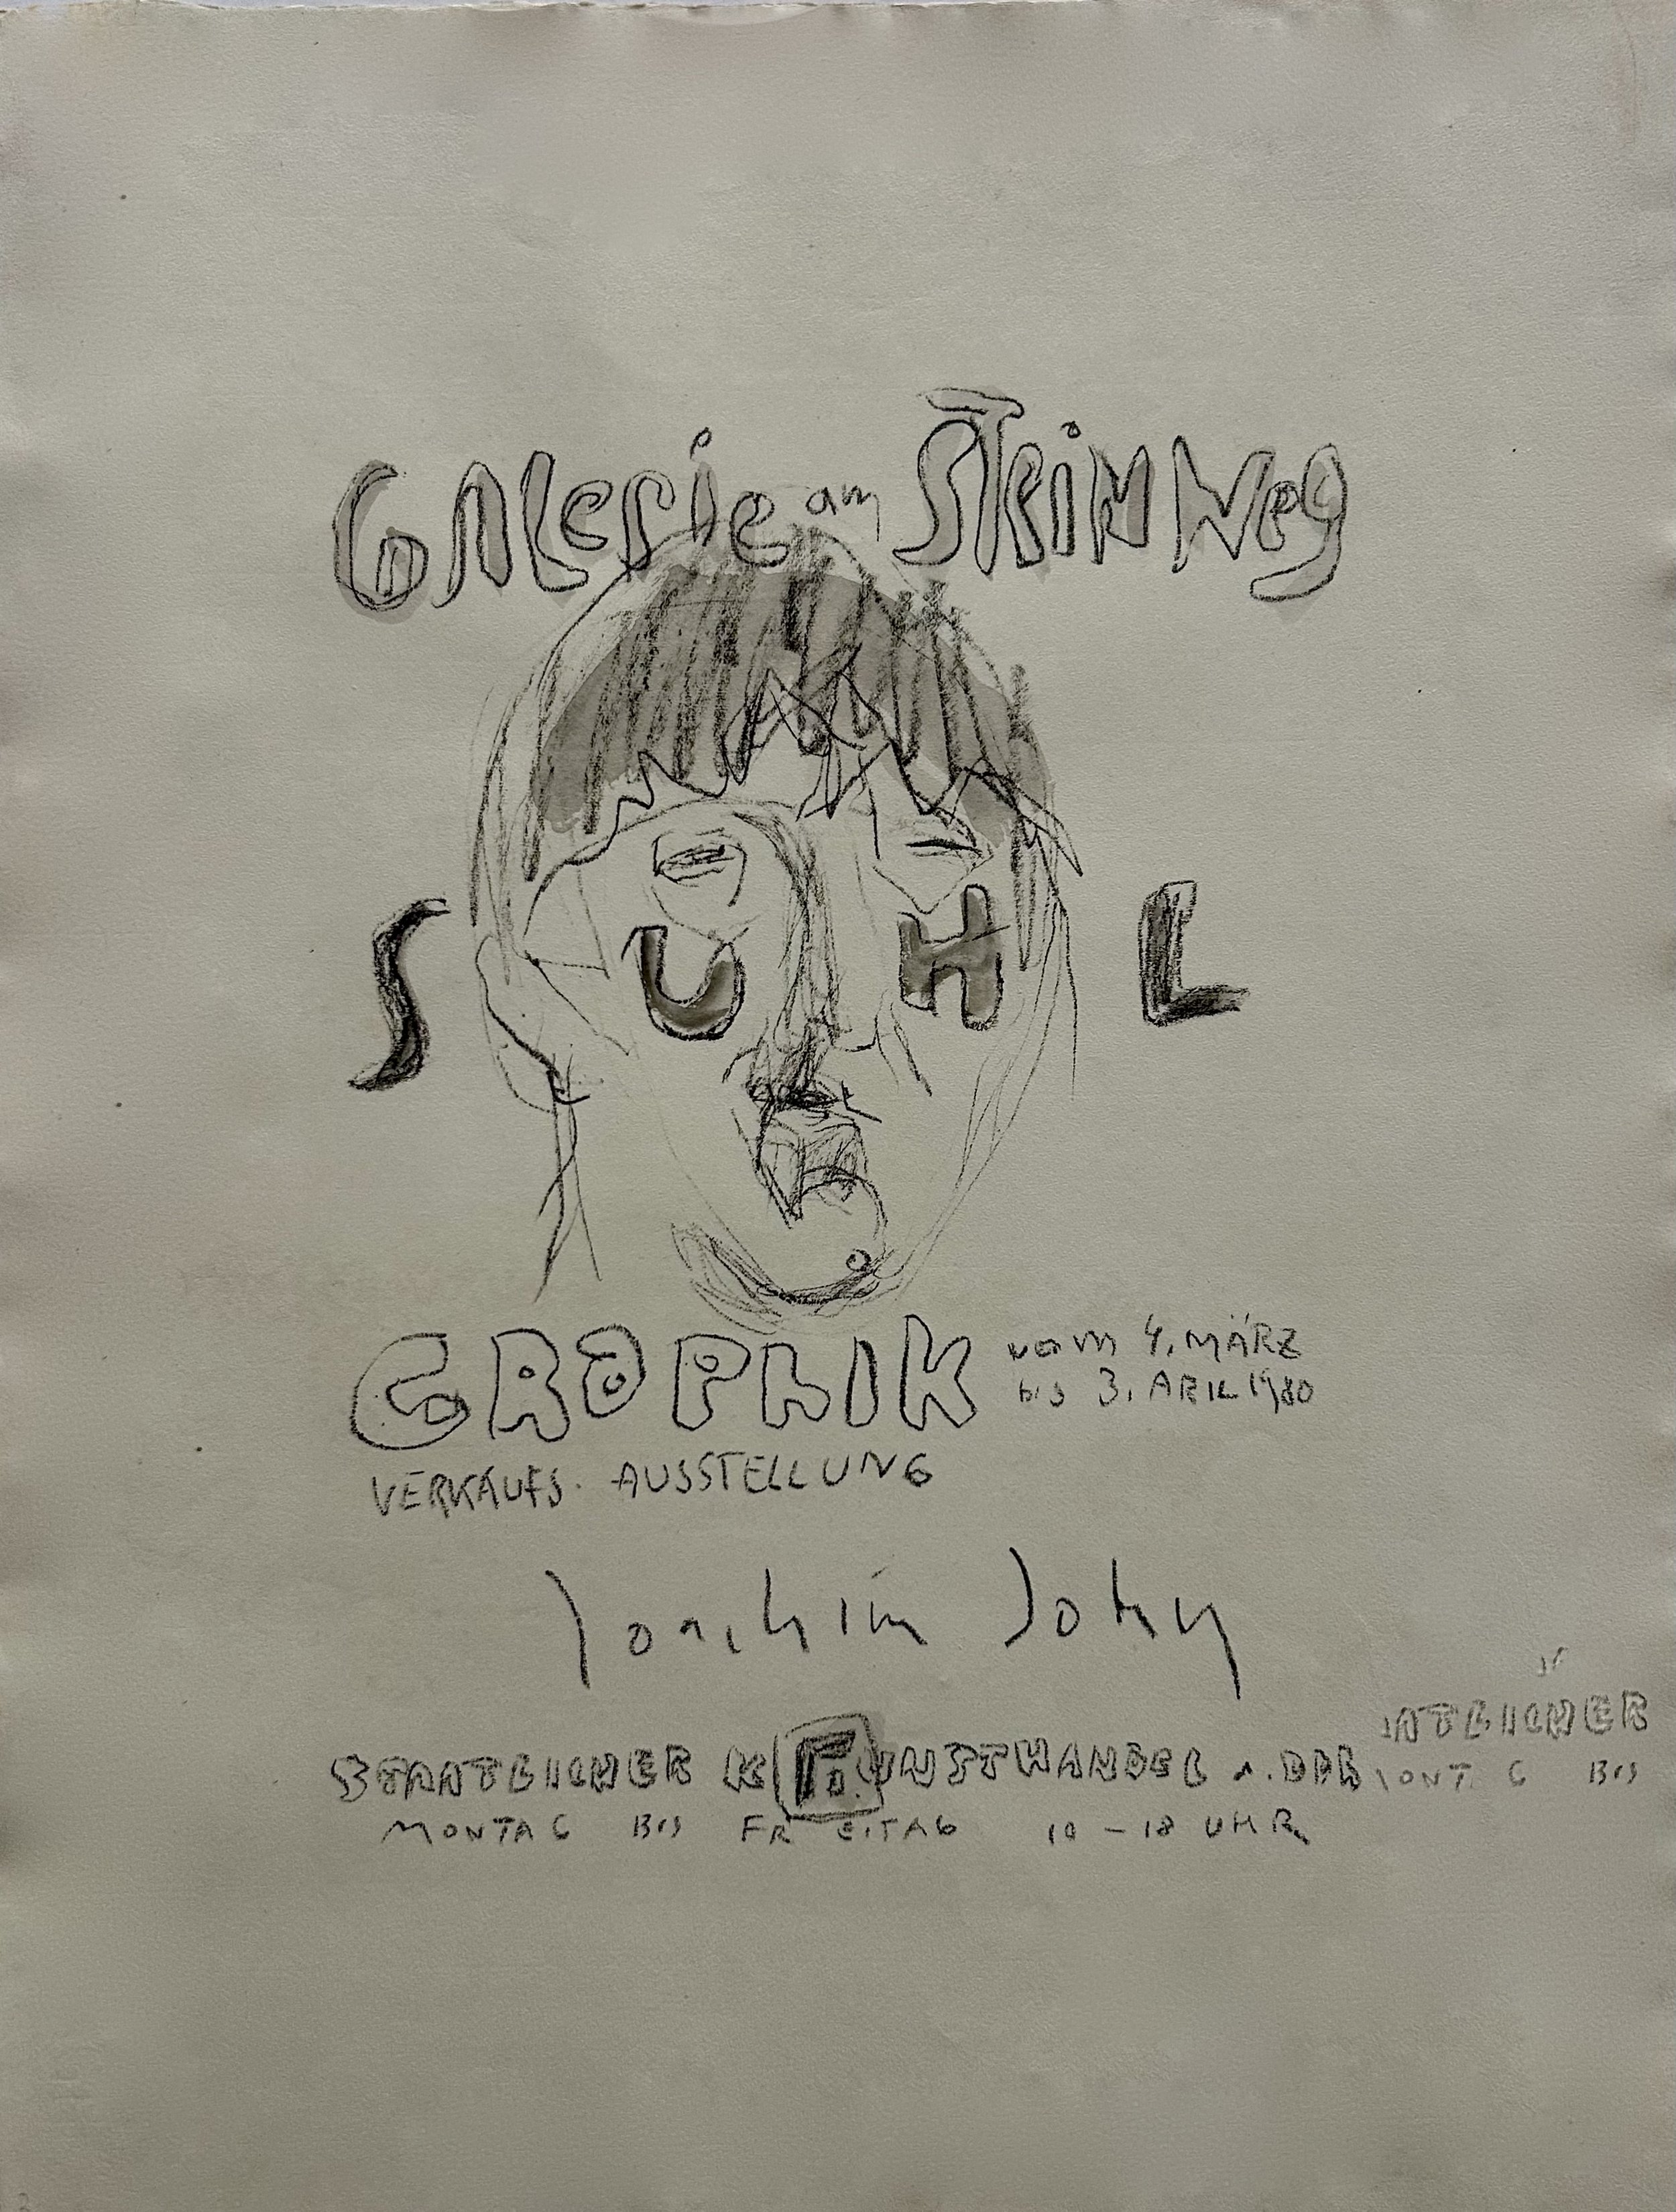 Galerie am STeiNWeg
SUHL
GRaPhIK
vom 4. MÄRZ
bis 3. APRIL 1980
VERKAUFS. AUSSTELLUNG
Joachim John
STAATLICHER KUNSTHANDEL d. DDR
MONTAG BIS FREITAG 10 – 18 UHR
ATLICHER
ONT G BIS